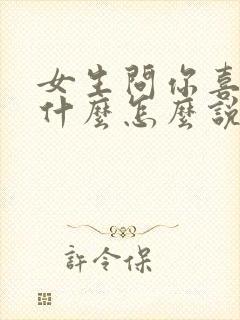 女生問你喜
什麼怎麼說
許令保